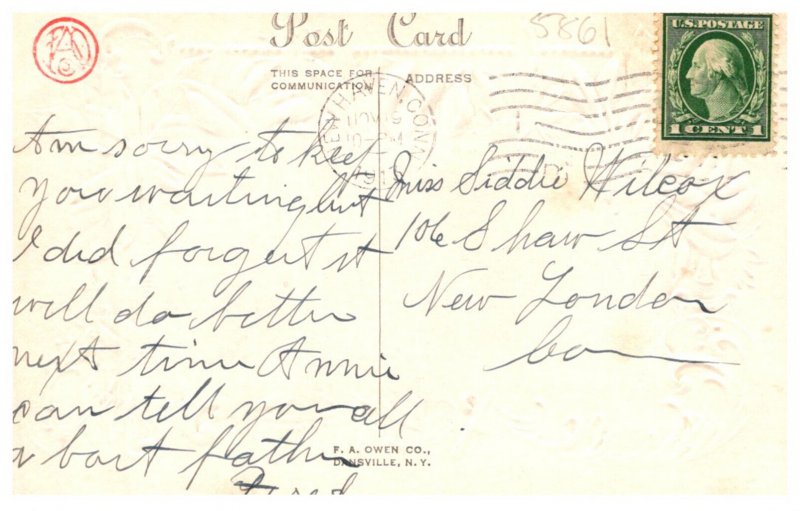 Post Card
5861
THIS SPACE FOR
COMMUNICATION
ADDRESS
U.S. POSTAGE
1 CENT 1
NEW HAVEN, CONN.
NOV 19
Am sorry to keep
you waiting but
I did forget it
will do better
next time Annie
can tell you all
a bout father
Fred
Miss Siddie Wilcox
106 Shaw St
New London
Con
F. A. OWEN CO.,
DANSVILLE, N.Y.